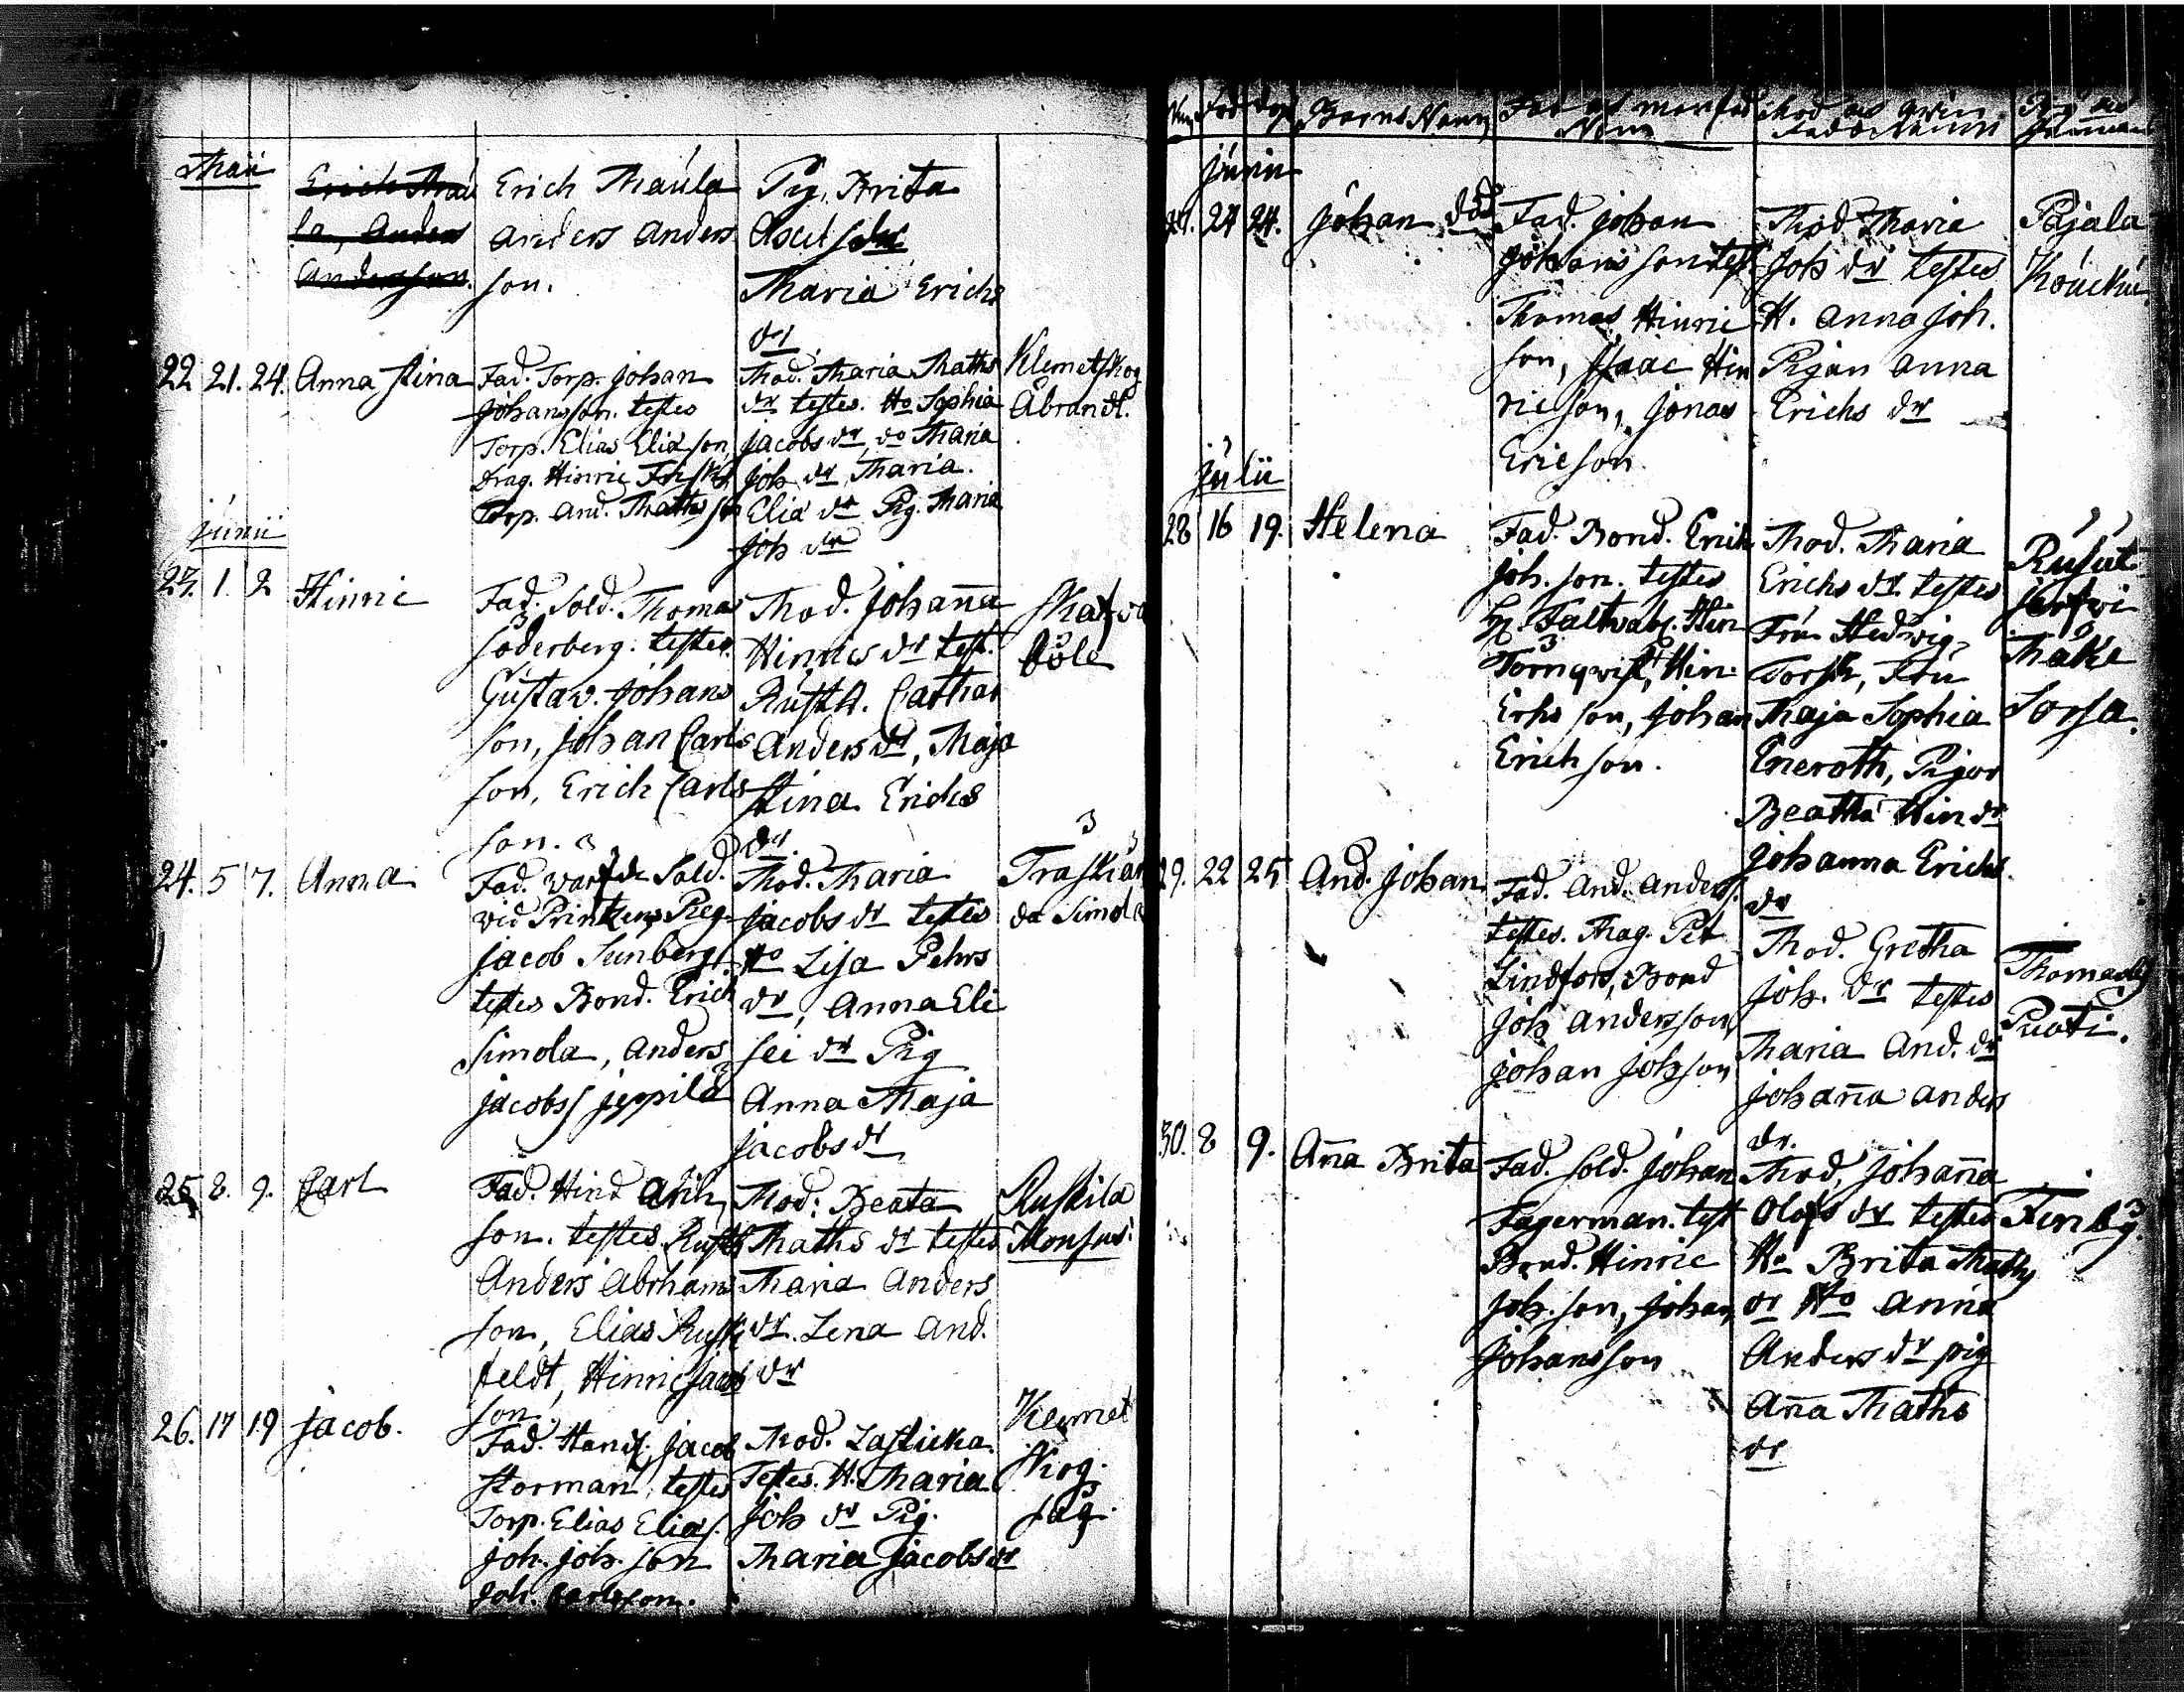 Maii
Erich Mau
la, Anders
Andersson.
Erich Maula
Anders Anders
son.
Pig. Brita
Axel
Maria Erichs
dr
22 21. 24. Anna Stina
Fad. Torp. Johan
Johansson. testes
Torp. Elias Eliæ son,
Drag. Hinric Frisk
Torp. And. Maths son
Mod. Maria Maths
dr testes. Ho Sophia
Jacobs dr, do Maria
Joh dr Maria
Eliæ dr Pig. Maria
Joh dr
Klemetskog
Åbrandt.
Junii
23. 1. 2 Hinric
Fad. Sold. Thomas
Söderberg. testes.
Gustav. Johans
son, Johan Carls
son, Erich Carls
son.
Mod. Johan̄a
Hinrics dr test.
Rustn. Cathar
Anders dr, Maja
Stina Erichs
dr.
böle
24. 5 7. Anna
Fad. Sold.
vid Printzens Reg.
Jacob Sunberg.
testes Bond. Erich
Simola, Anders
Jacobss Jeppilä
Mod. Maria
Jacobs dr testes
Ho Lisa Pehrs
dr, Anna Eli
sei dr Pig
Anna Maja
Jacobs dr
Träskän
da Simola
25 8. 9. Carl
Fad. Hind
son. testes. Rusth
Anders Abrhams
son, Elias Rusk
feldt, Hinric Jacob
son.
Mod. Beata
Maths dr testes
Maria Anders
dr. Lena And.
dr
Ruskila
Monsas
26. 17 19 Jacob.
Fad. Jacob
Storman, testes
Torp. Elias Elias.
Joh. Joh. son
Joh. Carlsson.
Mod. Lasticka
Testes. H. Maria
Joh dr Pig.
Maria Jacobs dr
Klemet
skog.
såg.
Num Föd döp Barns Namn
Junii
27. 24 24. Johan död
Fad. Johan
Johans son test
Thomas Hinric
son, Isaac Hin
ricson, Jonas
Ericson.
Mod Maria
Joh dr testes
H. Anna Joh.
Pigan Anna
Erichs dr
Pajala
Kouckú
Julii
28 16 19. Helena
Fad. Bond. Erich
Joh. son. testes
Hr. Faltvab. Hin
Törnqvist, Hin.
Erhs son, Johan
Erichson.
Mod. Maria
Erichs dr. testes
Fru Hedwig
Torsk, Fru
Maja Sophia
Eneroth, Pigor
Beatha Hin dr
Johanna Erichs
dr
Rusut
jerfwi
Måke
Sorsa.
29. 22 25 And. Johan
Fad. And. Anders.
testes. Mag. Pet
Lindfors, Bond
Joh Andersson,
Johan Johson
Mod. Gretha
Joh. dr testes
Maria And. dr
Johan̄a Anders
dr.
Thomasby
Puoti.
30. 8 9. An̄a Brita
Fad. Sold. Johan
Fagerman. test
Bond. Hinric
Joh. son, Johan
Johansson
Mod, Johan̄a
Olofs dr testes
Ho Brita Maths
dr Ho Anna
Anders dr pig
An̄a Maths
dr
Finby.